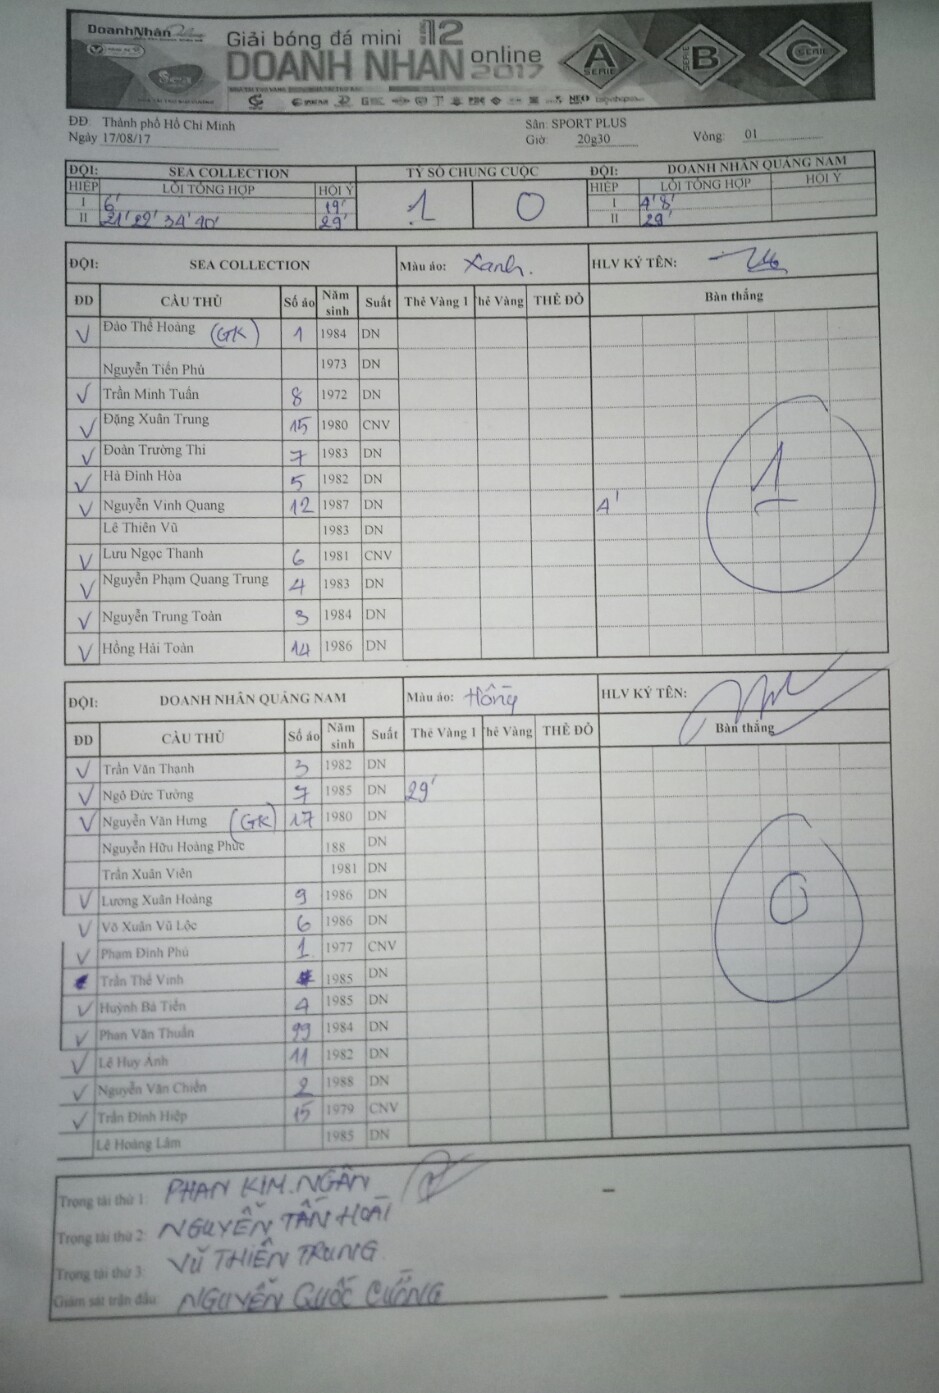 DoanhNhân
Sea
Giải bóng đá mini 12
DOANH NHÂN online
2017
A SERIE
B SERIE
C SERIE
ĐĐ: Thành phố Hồ Chí Minh Sân: SPORT PLUS
Ngày 17/08/17 Giờ: 20g30 Vòng: 01
ĐỘI: SEA COLLECTION TỶ SỐ CHUNG CUỘC ĐỘI: DOANH NHÂN QUẢNG NAM
HIỆP LỖI TỔNG HỢP HỘI Ý 1 0 HIỆP LỖI TỔNG HỢP HỘI Ý
I 6' 19' I 4' 8'
II 21' 22' 34' 40' 29' II 29'
ĐỘI: SEA COLLECTION Màu áo: Xanh. HLV KÝ TÊN:
ĐD CẦU THỦ Số áo Năm sinh Suất Thẻ Vàng 1 Thẻ Vàng THẺ ĐỎ Bàn thắng
Đào Thế Hoàng (GK) 1 1984 DN
Nguyễn Tiến Phú 1973 DN
Trần Minh Tuấn 8 1972 DN
Đặng Xuân Trung 15 1980 CNV
Đoàn Trường Thi 7 1983 DN
Hà Đình Hòa 5 1982 DN
Nguyễn Vinh Quang 12 1987 DN 4' 1
Lê Thiên Vũ 1983 DN
Lưu Ngọc Thanh 6 1981 CNV
Nguyễn Phạm Quang Trung 4 1983 DN
Nguyễn Trung Toàn 3 1984 DN
Hồng Hải Toàn 14 1986 DN
ĐỘI: DOANH NHÂN QUẢNG NAM Màu áo: Hồng HLV KÝ TÊN:
ĐD CẦU THỦ Số áo Năm sinh Suất Thẻ Vàng 1 Thẻ Vàng THẺ ĐỎ Bàn thắng
Trần Văn Thanh 3 1982 DN
Ngô Đức Tường 7 1985 DN 29'
Nguyễn Văn Hưng (GK) 17 1980 DN
Nguyễn Hữu Hoàng Phúc 188 DN
Trần Xuân Viên 1981 DN
Lương Xuân Hoàng 9 1986 DN 0
Võ Xuân Vũ Lộc 6 1986 DN
Phạm Đình Phú 1 1977 CNV
Trần Thế Vinh 1985 DN
Huỳnh Bá Tiến 4 1985 DN
Phan Văn Thuấn 99 1984 DN
Lê Huy Ánh 11 1982 DN
Nguyễn Văn Chiến 2 1988 DN
Trần Đình Hiệp 15 1979 CNV
Lê Hoàng Lâm 1985 DN
Trọng tài thứ 1: PHAN KIM NGÂN
Trọng tài thứ 2: NGUYỄN TẤN HOÀI
Trọng tài thứ 3: VŨ THIÊN TRUNG
Giám sát trận đấu: NGUYỄN QUỐC CƯỜNG